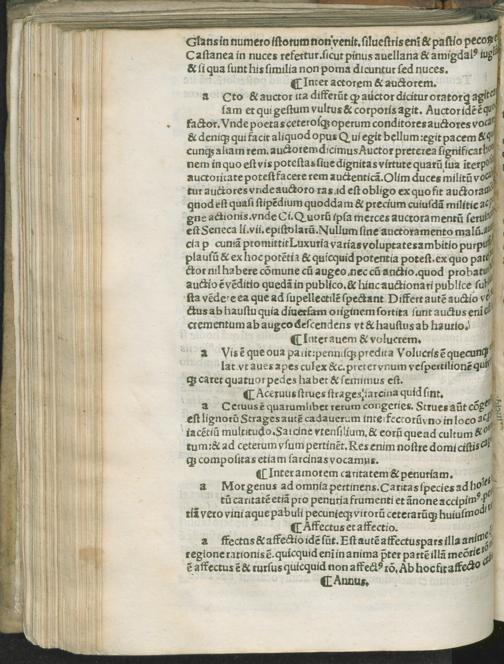 Glans in numero istorum non venit. siluestris eni ē & pastio pecor
Castanea in nuces refertur. sicut pinus auellana & amigdalꝰ iugl
& si qua sunt his similia non poma dicuntur sed nuces.
¶Inter actorem & auctorem.
a Cto & auctor ita differūt ꝙ auctor dicitur oratorꝗ agit ca
sam et qui gestum vultus & corporis agit. Auctor idē ē q
factor. Vnde poetas ceterosꝗ operum conditores auctores vocam
& deniqꝫ qui facit aliquod opus Qui egit bellum: egit pacem & q
cunqꝫ aliam rem. auctorem dicimus Auctor preterea significat
nem in quo est vis potestas siue dignitas virtute quarū sua īterpo
auctoritate potest facere rem auctenticā. Olim duces militū voca
tur auctores vnde auctoro ras. id est obligo ex quo fit auctoram
quod est quasi stipēdium quoddam & precium cuiusdā militie ac
gne actionis. vnde Ci. Quorū ipsa merces auctoramentū seruit
est Seneca li. vii. epistolarū. Nullum sine auctoramento malū. a
cia p cuniā promittit Luxuria varias voluptates ambitio purpu
plausū & ex hoc potētia & quicquid potentia potest. ex quo pat
ctor nil habere cōmune cū augeo. nec cū auctio. quod probatur
auctio ē vēditio quedā in publico. & hinc auctionari publice sub
sta vēdere ea que ad supellectilē spectant Differt autē auctio ve
ctus ab haustu quia diuersam originem sortita sunt auctus eni e
crementum ab augeo descendens vt & haustus ab haurio.
¶Inter auem & volucrem.
a Vis ē que oua parit: pennisqꝫ predita Volucris ē quecunqꝫ
lat. vt aues apes culex &c. preter vnum vespertilionē quis
ꝗ caret quatuor pedes habet & semimus est.
¶Aceruus strues strages, sarcina quid sint.
a Ceruus ē quarumlibet rerum congeries. Strues aūt cōge
est lignorū Strages autē cadauerum interfectorū vno in loco ac
iacētiū multitudo. Sarcine vtensilium. & eorū que ad cultum & or
tum: & ad ceterum vsum pertinēt. Res enim nostre domi cistis cap
ꝗ compositas etiam sarcinas vocamus.
¶Inter amorem caritatem & penuriam.
a Mor genus ad omnia pertinens. Caritas species ad hoīes
tū caritatē etiā pro penuria frumenti et ānone accipimꝰ. pe
riā vero vini aque pabuli pecunieqꝫ vitorū ceterarūqꝫ huiusmodi
¶Affectus et affectio.
a ffectus & affectio idē sūt. Est autē affectus pars illa anime
regione rationis ē. quicquid eni in anima p̄ter partē illā meōrie
ē affectus ē & rursus quicquid non affectꝰ rō. Ab hoc fit affecto
¶Annus.